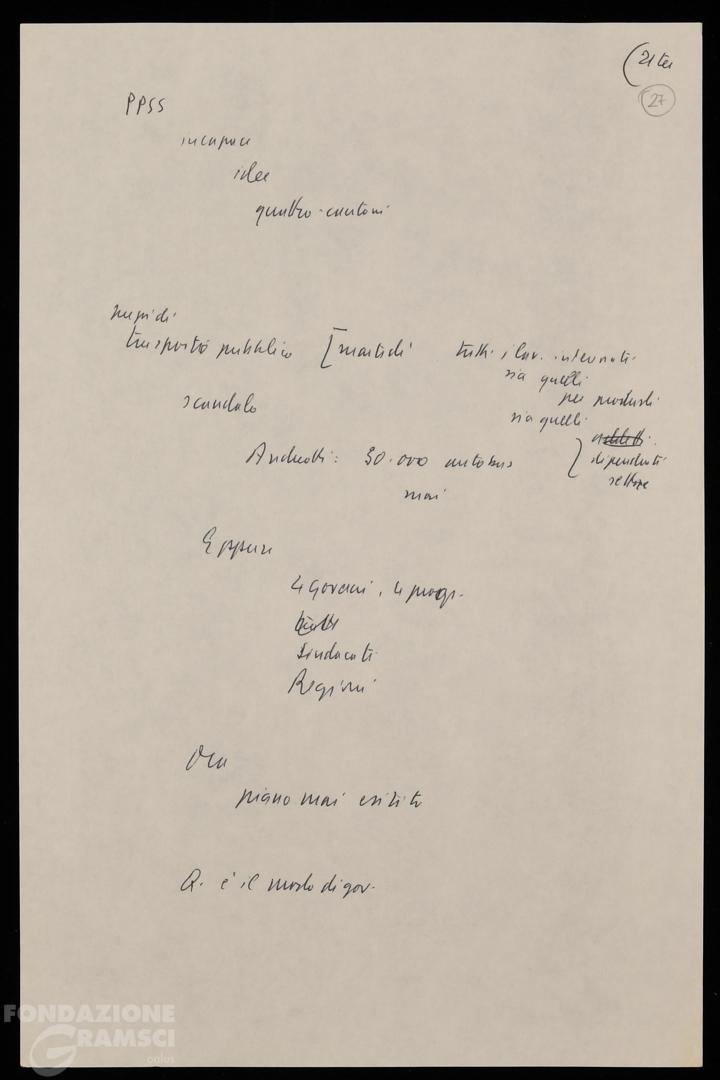 (21 ter
27
PPSS
incapaci
idee
quattro cantoni
trasporto pubblico [martedì tutti i lav. interessati
sia quelli
per produrli
scandalo
sia quelli
addetti
Andreotti: 30.000 autobus
dipendenti
settore
mai
Eppure
4 Governi, 4 progr.
Sindacati
Regioni
Ora
piano mai esistito
Q. è il modo di gov.
FONDAZIONE
GRAMSCI
onlus